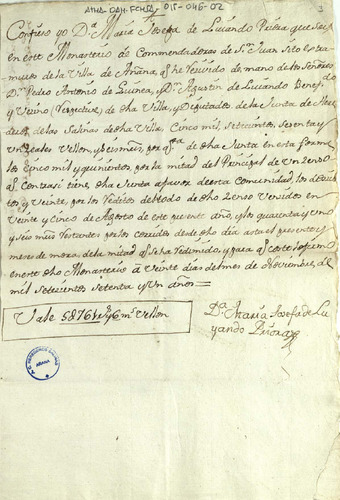 AIHA-DAH-FCHSA-015-046-02
Confieso yo D.ª María Josefa de Luiando Priora que soy
en este Monasterio de Commendadoras de S.ⁿ Juan Sito extra
muros de la Villa de Añana, q.e he rezivido de mano de los Señores
D.ⁿ Pedro Antonio de Guinea, y D.ⁿ Agustin de Luiando Benefi
do y Vezino (respective) de dha Villa, y Diputados de la Junta de Here
deros de las Salinas de dha Villa, Cinco mil, setecientos, setenta y
un reales Vellon, y seis mrs, por q.ta de dha Junta en esta forma
los Cinco mil y quinientos, por la mitad del Prinzipal de Un zenso
q.e contra si tiene dha Junta a favor de esta comunidad, los doscien
tos y veinte, por los redditos del todo de dho zenso Venzidos en
Veinte y cinco de Agosto de este presente año, y los quarenta y uno
y seis mrs restantes por los corridos desde dho dia asta el presente y
mera de mora de la mitad q.e se ha redimido, y para q.e conste lo firmo
en este dho Monasterio à Veinte dias del mes de Noviembre, de
mil setecientos setenta y Un años=
Vale 5876 1 rs y 6 ms Vellon
D.ª María Josefa de Lu
yando Priora
AÑANA